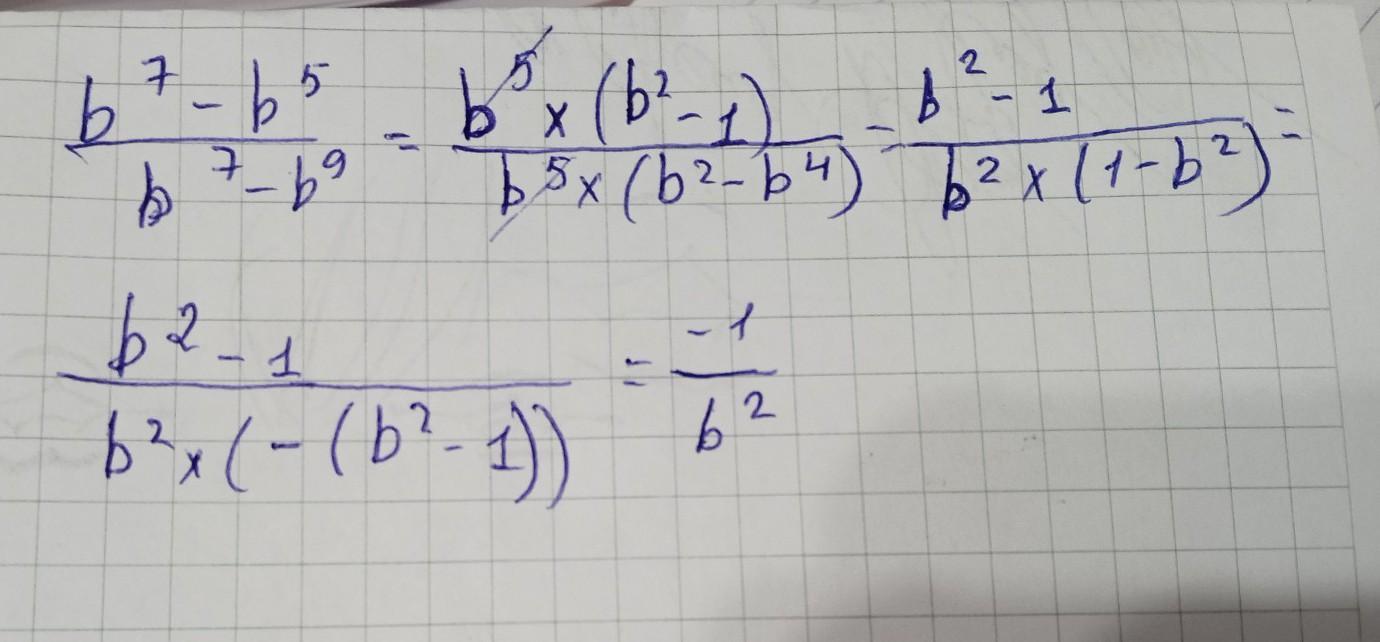 \frac{b^7 - b^5}{b^7 - b^9} = \frac{b^5 × (b^2 - 1)}{b^5 × (b^2 - b^4)} = \frac{b^2 - 1}{b^2 × (1 - b^2)} =
\frac{b^2 - 1}{b^2 × (-(b^2 - 1))} = \frac{-1}{b^2}